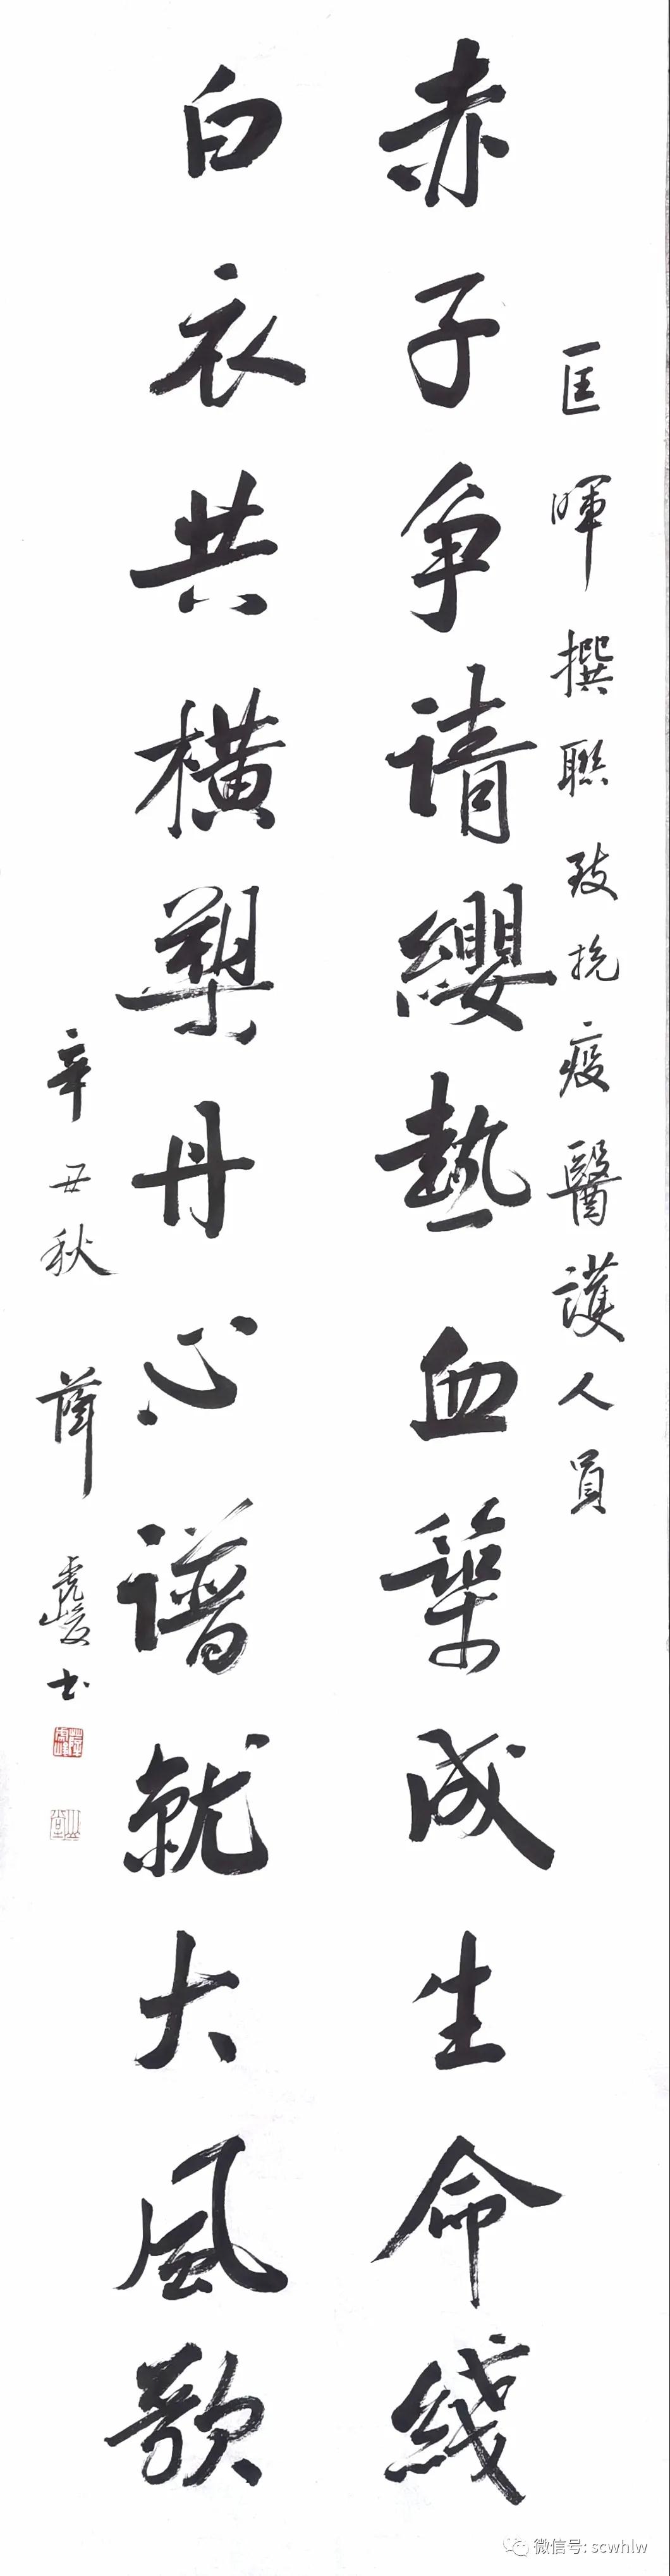 匡暉撰聯致抗疫醫護人員
赤子争请纓熱血築成生命綫
白衣共横槊丹心谱就大風歌
辛丑秋 薛虎峻书
微信号: scwhlw